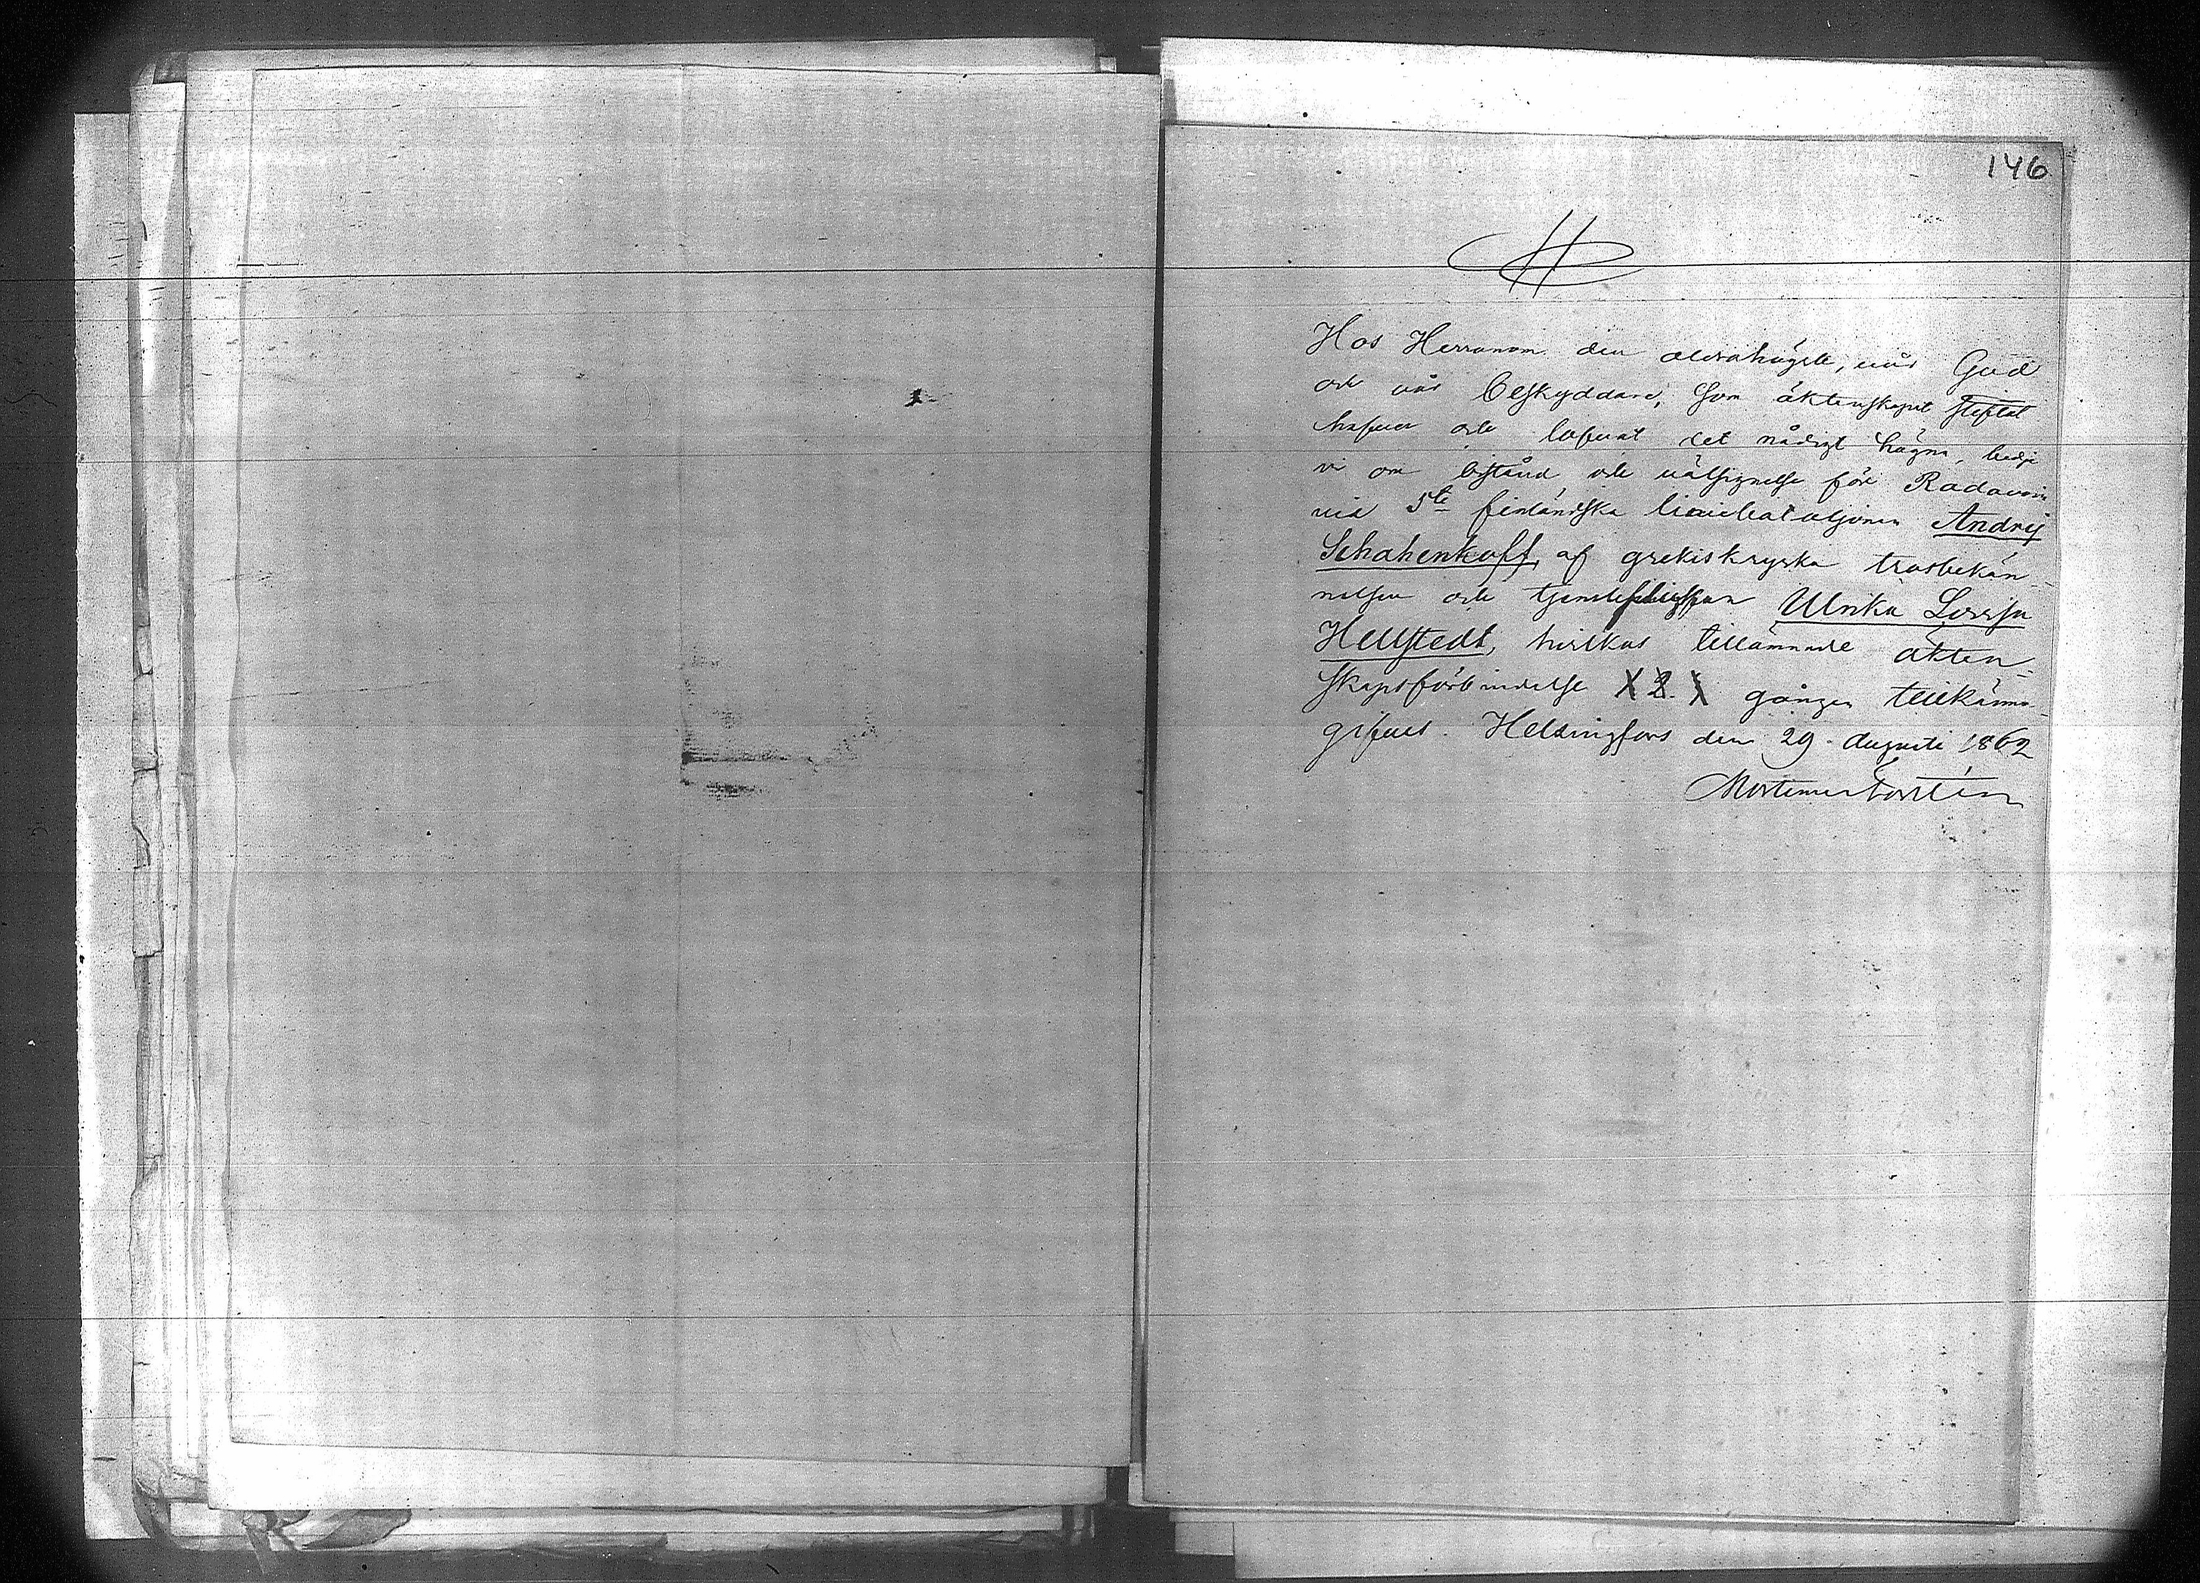 146
H
Hos Herranom den aldrahögste, vår Gud
och vår Beskyddare, som äktenskapet stiftat
hafver och lofvat det nådigt hägna, bedje
vi om bistånd och välsignelse för
vid 5te finländska liniebataljonen Andrej
Schahenkoff af grekiskryska trosbekän-
nelsen och tjensteflickan Ulrika Lovisa
Hellstedt, hvilkas tillämnade äkten-
skapsförbindelse X 2. X gången tillkänna-
gifves. Helsingfors den 29 Augusti 1862
Mortimer